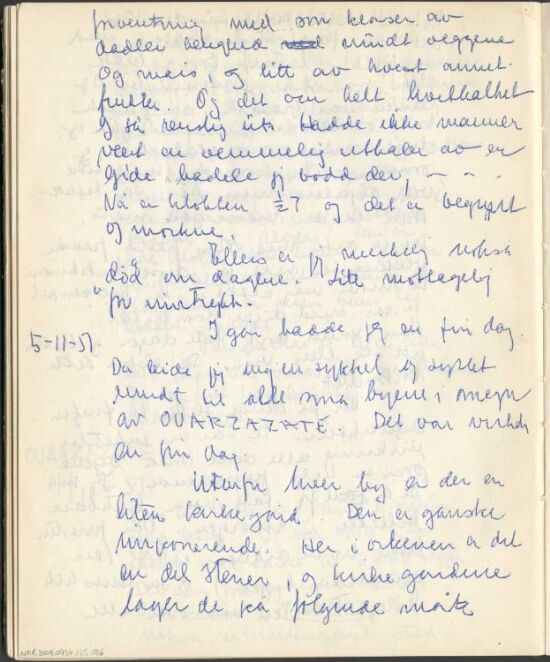 med en kranser av
dadler hengend rundt veggene
Og mais, og litt av hvert annet.
frukter. Og det var helt hvitkalket
og så vensdig ut. Hadde ikke manner
vært en vemmelig uthaler av en
gide, hadde jeg bodd der. - - -
Nå er klokken ½7 og det er begynt
å mørkne.
Ellers er jeg merkelig nokså
"død" om dagene. Lite mottagelig
for inntrykk.
I går hadde jeg en fin dag.
5-11-51.
Da leide jeg meg en sykkel og syklet
rundt til alle små byene i omegn
av OUARZAZATE. Det var virkelig
en fin dag
Utenfor hver by er der en
liten kirkegård. Den er ganske
imponerende. Her i ørkenen er det
en del stener, og kirkegårdene
lager de på følgende måte
NMR.2008.0934.125.026